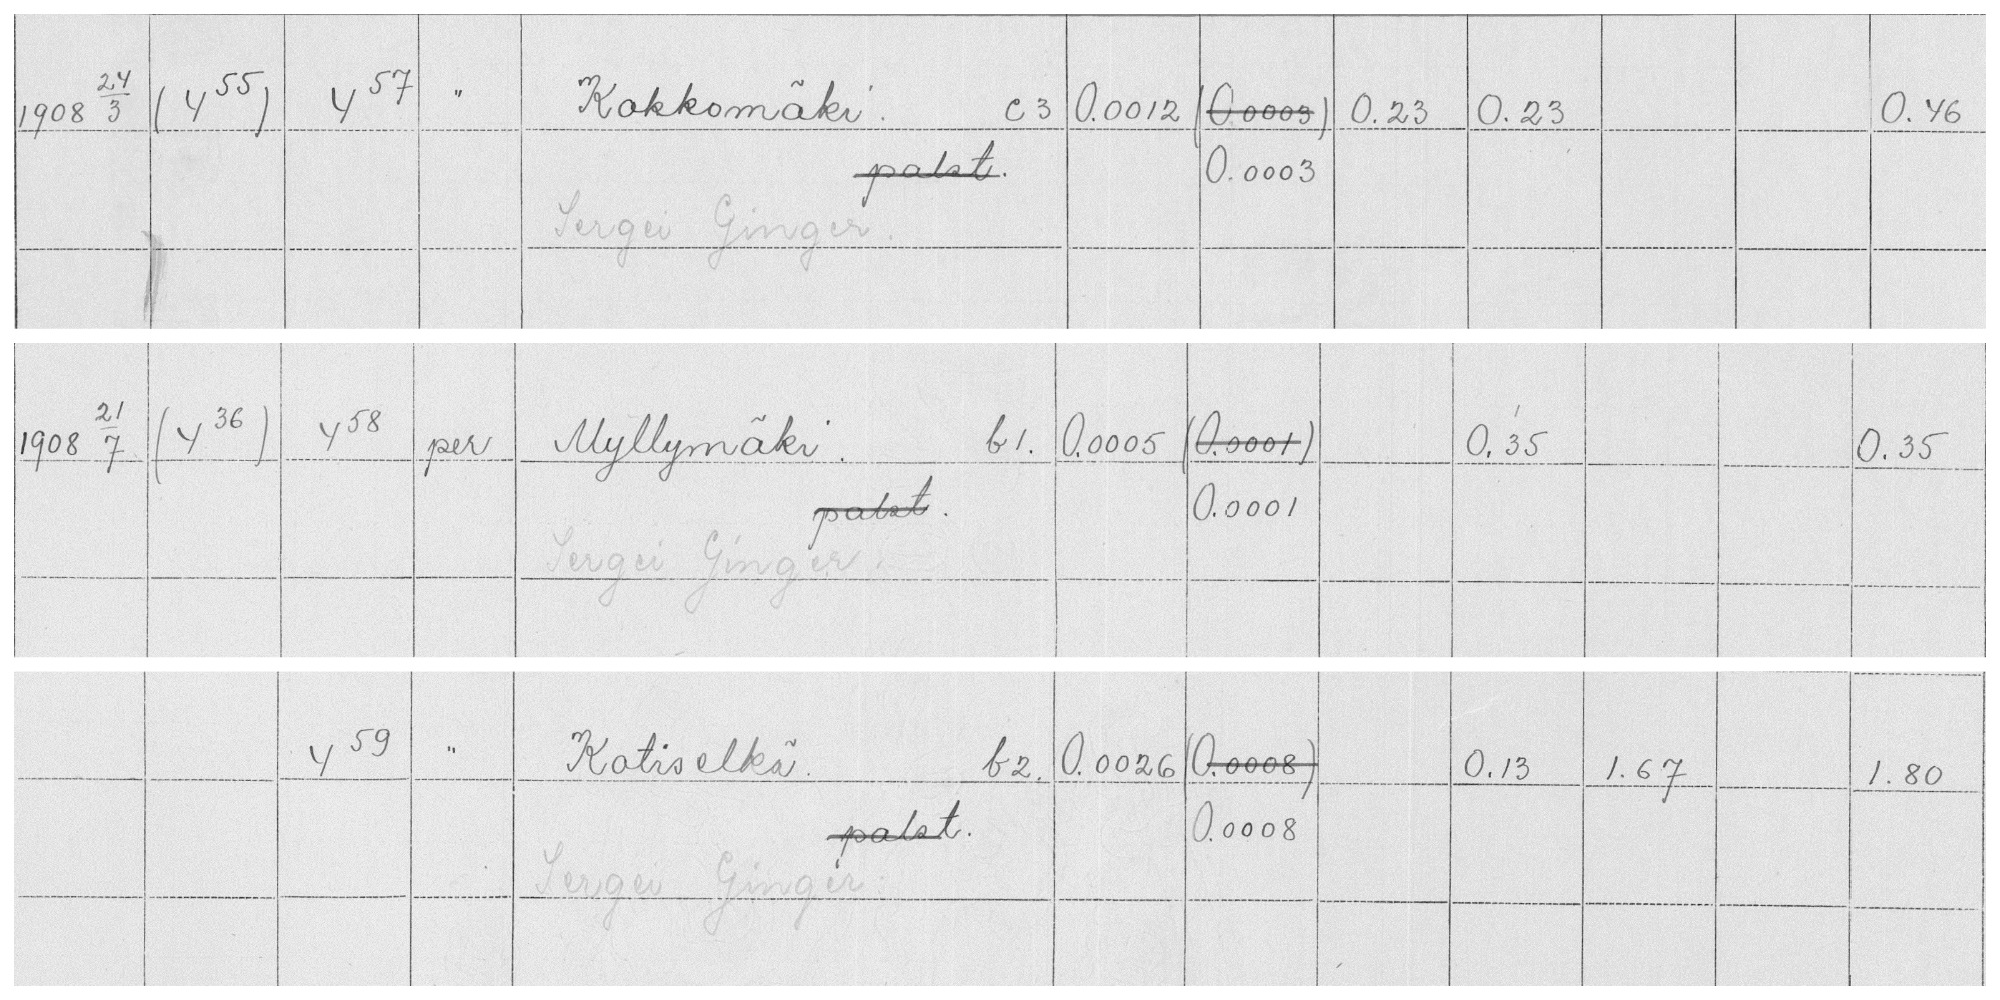 1908 24/3 (4⁵⁵) 4⁵⁷ " Kokkomäki. c3 0.0012 (0.0003) 0.23 0.23 0.46
palst. 0.0003
Sergei Ginger.
1908 21/7 (4³⁶) 4⁵⁸ per Myllymäki. b1. 0.0005 (0.0001) 0.35 0.35
palst. 0.0001
Sergei Ginger.
4⁵⁹ " Kotiselkä. b2. 0.0026 (0.0008) 0.13 1.67 1.80
palst. 0.0008
Sergei Ginger.